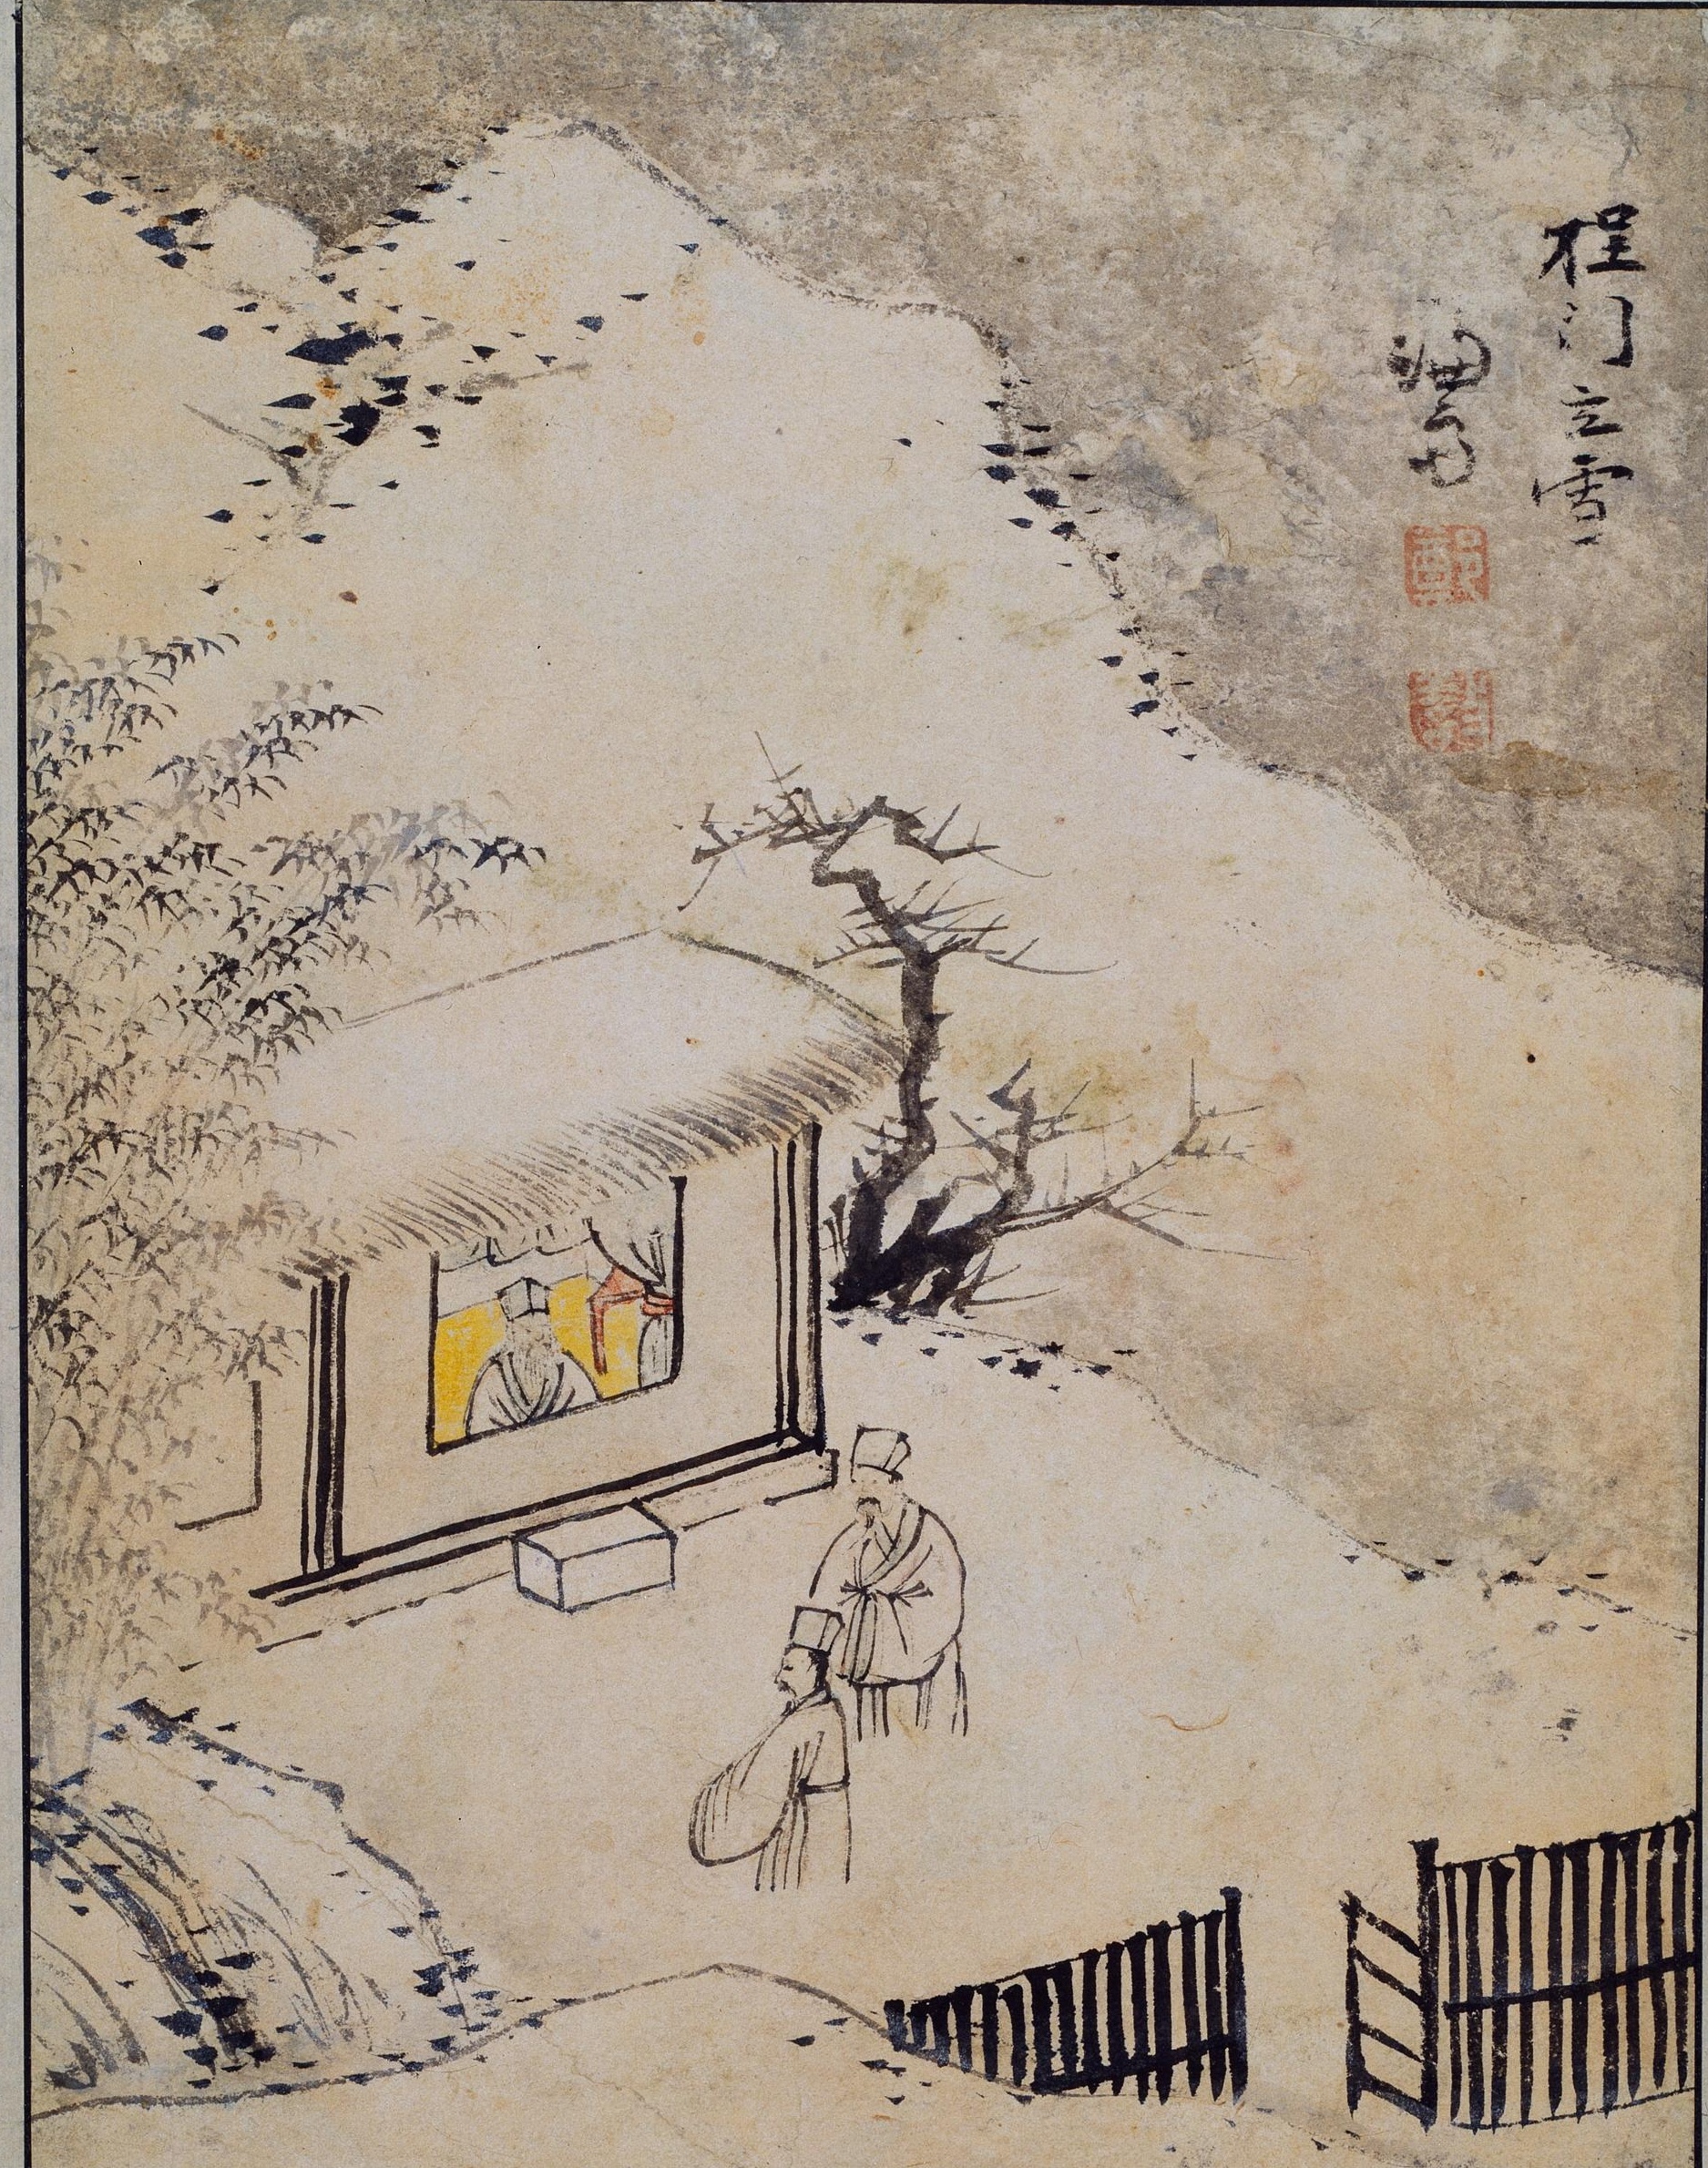 程門立雪
謙齋